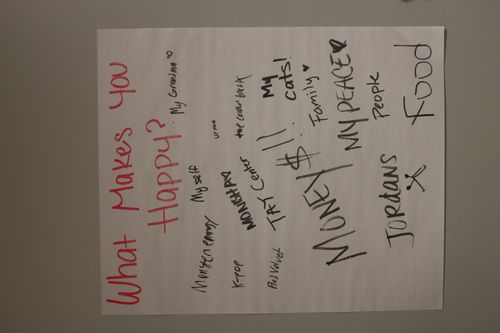 What Makes YOU
Happy?
My Grandma ♡
Monster energy
My self
K-pop
MONSTA X
the corner back
Red Velvet
TAY Center
My
cats!
MONEY $!!
Family ♥
MY PEACE ♥
people
JORDANS
Food